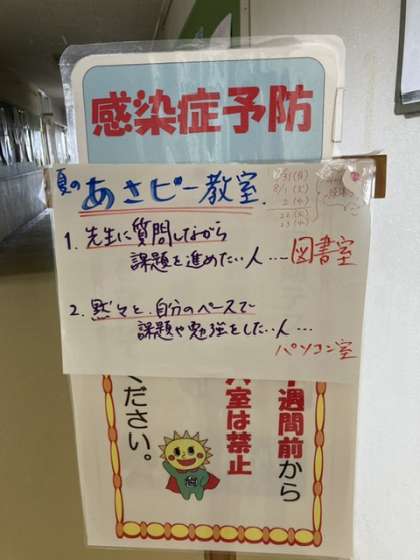 感染症予防
夏の あさピー教室.
7/31(月)
8/1(火)
2(水)
22(火)
23(水)
1. 先生に質問しながら
課題を進めたい人…. 図書室
2. 黙々と、自分のペースで
課題や勉強をしたい人…
パソコン室
週間前から
室は禁止
ください。